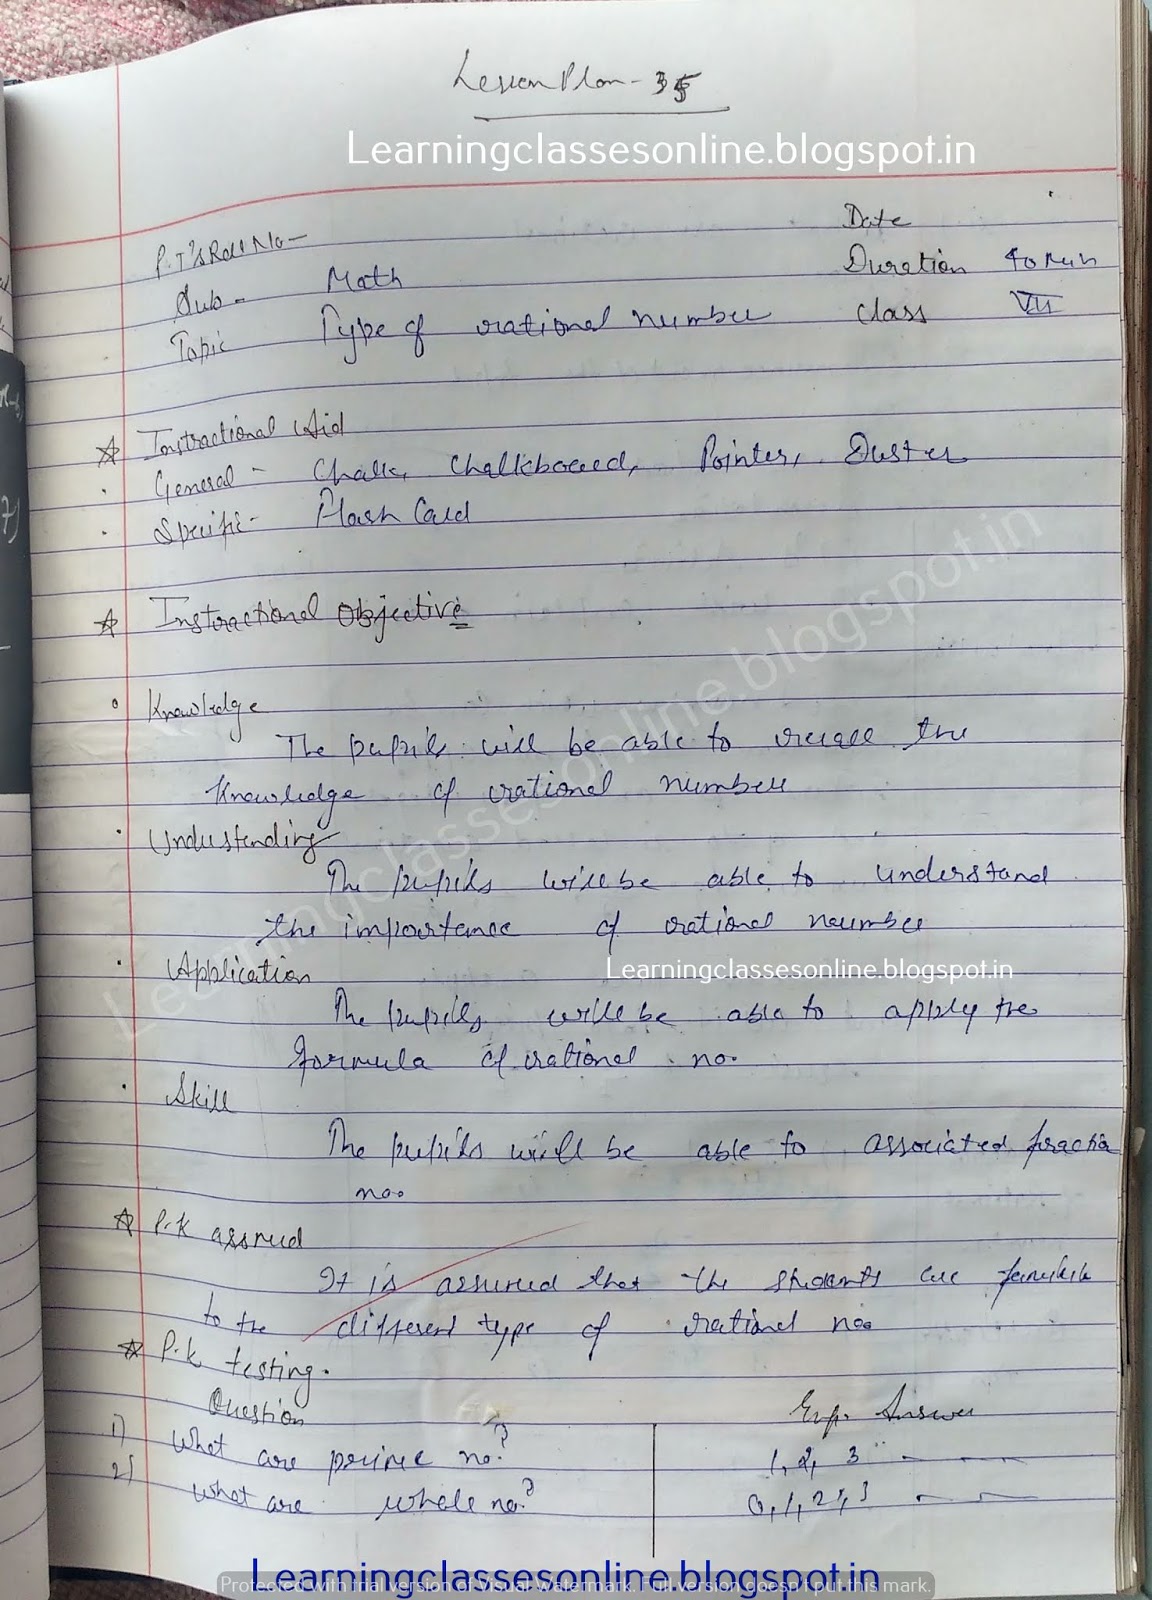 Lesson Plan - 35
Learningclassesonline.blogspot.in
P.T's Roll No -
Date
Sub - Math
Duration 40 Min
Topic Type of rational number
Class VII
Instractional Aid
General - Chalk, Chalkboard, Pointer, Duster
Specific - Flash Card
Instractional Objective
Knowledge
The pupils will be able to recall the
knowledge of rational number
Understanding
The pupils will be able to understand
the importance of rational number
Application
Learningclassesonline.blogspot.in
The pupils will be able to apply the
formula of rational no.
Skill
The pupils will be able to associated
no.
P.K assumed
It is assumed that the students are
to the different type of rational no.
P.K testing.
Question Exp. Answer
1) What are prime no.? 1, 2, 3
2) What are whole no.? 0, 1, 2, 3
Learningclassesonline.blogspot.in
Protected with trial version of Visual Watermark. Full version doesn't put this mark.
Learningclassesonline.blogspot.in